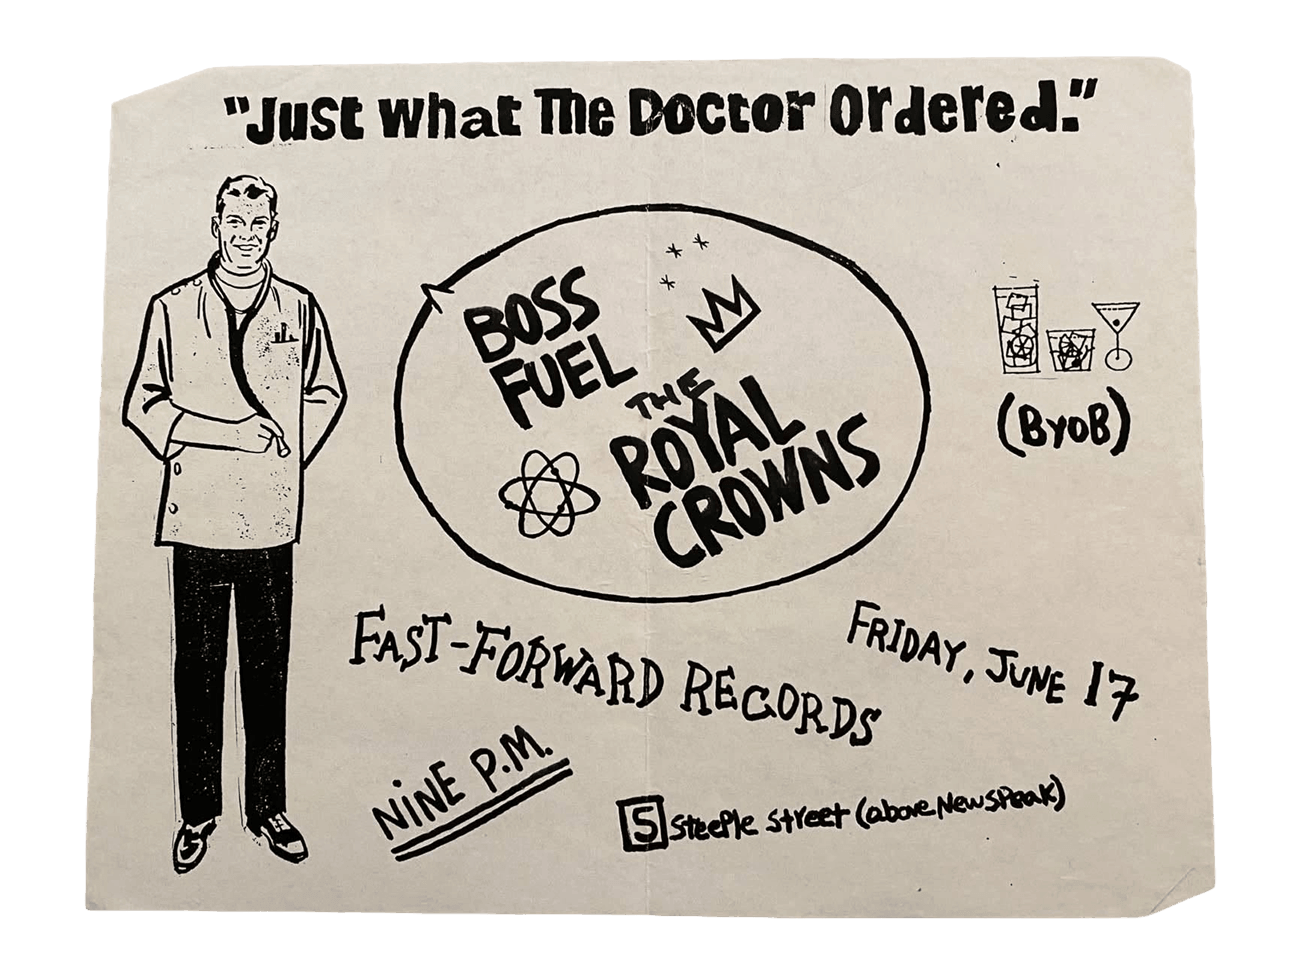 "Just What The Doctor Ordered."
BOSS
FUEL
THE
ROYAL
CROWNS
(BYOB)
FAST-FORWARD RECORDS
FRIDAY, JUNE 17
NiNE P.M.
5 Steeple Street (above Newspeak)